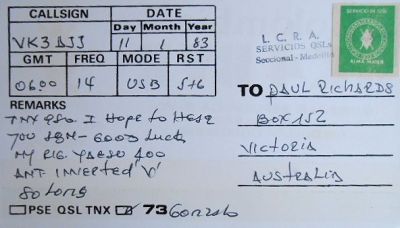 CALLSIGN DATE
Day Month Year
VK3DJJ 11 1 83
GMT FREQ MODE RST
0600 14 USB
REMARKS
TNX QSO. I Hope to Hear
You AGN - GOOD Luck
My RIG YAESU 400
ANT INVERTED 'V'
SO LONG
PSE QSL TNX 73 Gonzalo
L. C. R. A.
SERVICIOS QSLs
Seccional - Medellin
ALMA MATER
TO PAUL RICHARDS
BOX 152
VICTORIA
AUSTRALIA